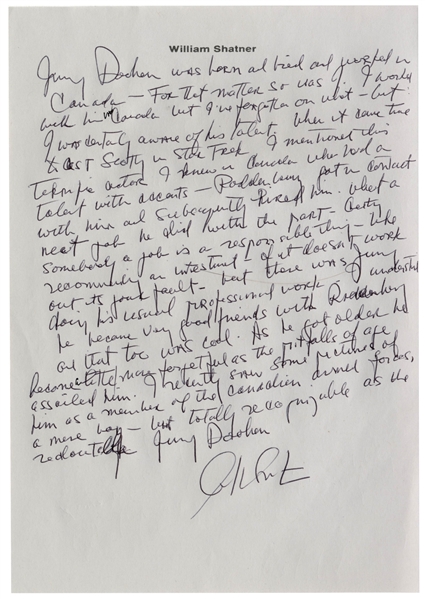 William Shatner
Jimmy Doohan was born and bred and worked in
Canada – For that matter so was I. I worked
with him in Canada but I've forgotten on what – but
I was certainly aware of his talent. When it came time
to cast Scotty in Star Trek I mentioned this
terrific actor I knew in Canada who had a
talent with accents – Roddenberry got in contact
with him and subsequently hired him. What a
neat job he did with the part – Getting
somebody a job is a responsible thing – like
recommending an investment – if it doesn't work
out it's your fault – but there was Jimmy
doing his usual professional work. I understand
he became very good friends with Roddenberry
and that too was cool. As he got older he
became a little more forgetful as the pitfalls of age
assailed him. I recently saw some pictures of
him as a member of the Canadian armed forces,
a mere boy – but totally recognizable as the
redoubtable Jimmy Doohan